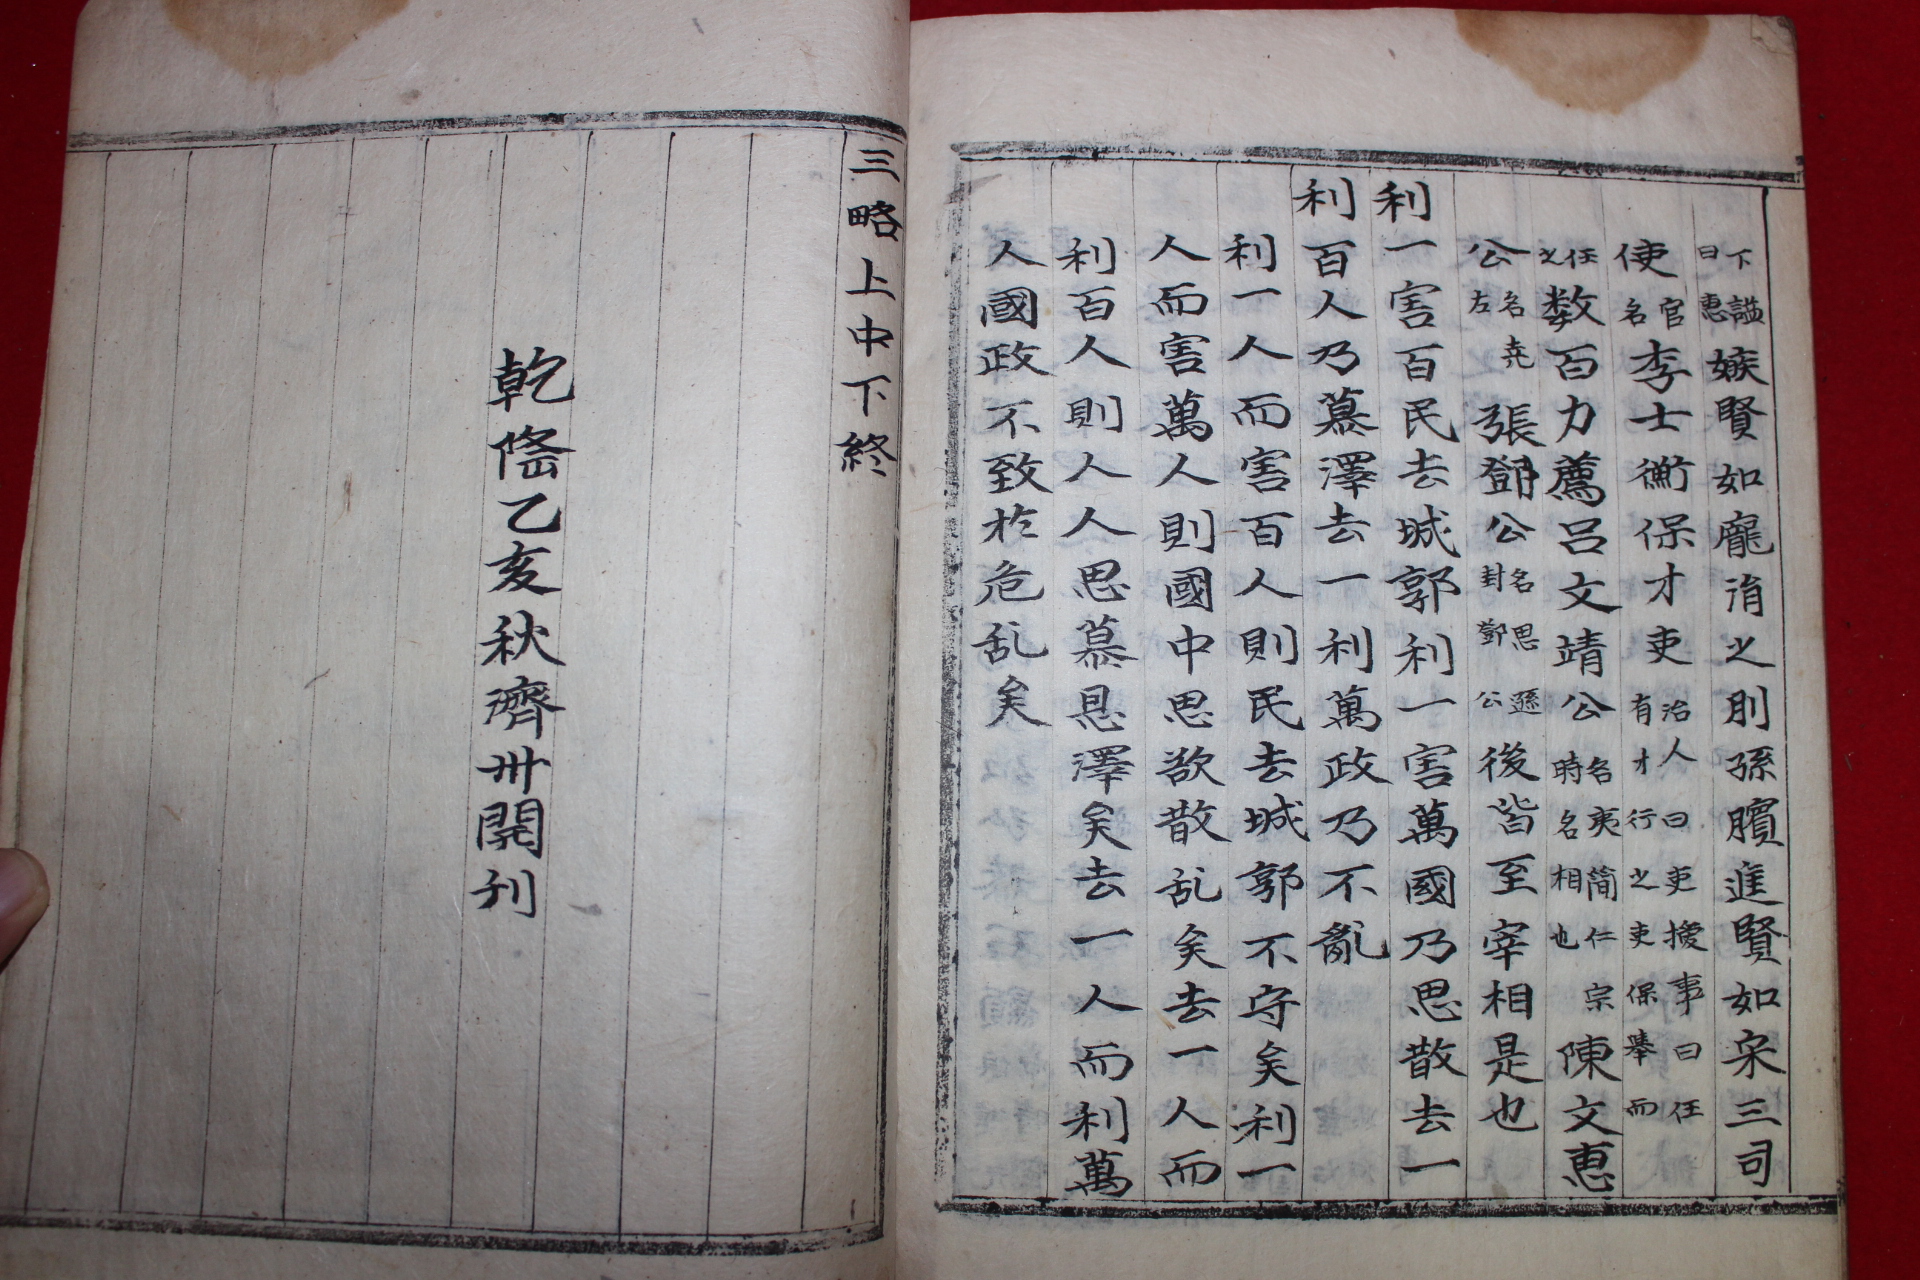 下諡曰惠嫉賢如龐涓之刖孫臏進賢如宋三司
使官名李士衡保才吏治人曰吏援事曰任有才行之吏保舉而
任之数百力薦呂文靖公名夷簡仁宗時名相也陳文惠
公名尭左張鄧公名思遜封鄧公後皆至宰相是也
利一害百民去城郭利一害萬國乃思散去一
利百人乃慕澤去一利萬政乃不亂
利一人而害百人則民去城郭不守矣利一
人而害萬人則國中思欲散乱矣去一人而
利百人則人人思慕恩澤矣去一人而利萬
人國政不致於危乱矣
三略上中下終
乾隆乙亥秋濟州開刋